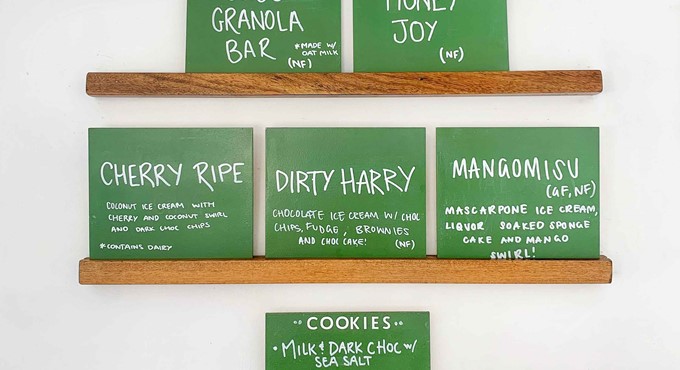 GRANOLA
BAR
*MADE W/
OAT MILK
(NF)
JOY
(NF)
CHERRY RIPE
COCONUT ICE CREAM WITH
CHERRY AND COCONUT SWIRL
AND DARK CHOC CHIPS
*CONTAINS DAIRY
DIRTY HARRY
CHOCOLATE ICE CREAM W/ CHOC
CHIPS, FUDGE, BROWNIES
AND CHOC CAKE!
(NF)
MANGOMISU
(GF, NF)
MASCARPONE ICE CREAM,
LIQUOR SOAKED SPONGE
CAKE AND MANGO
SWIRL!
COOKIES
• MILK & DARK CHOC W/
SEA SALT